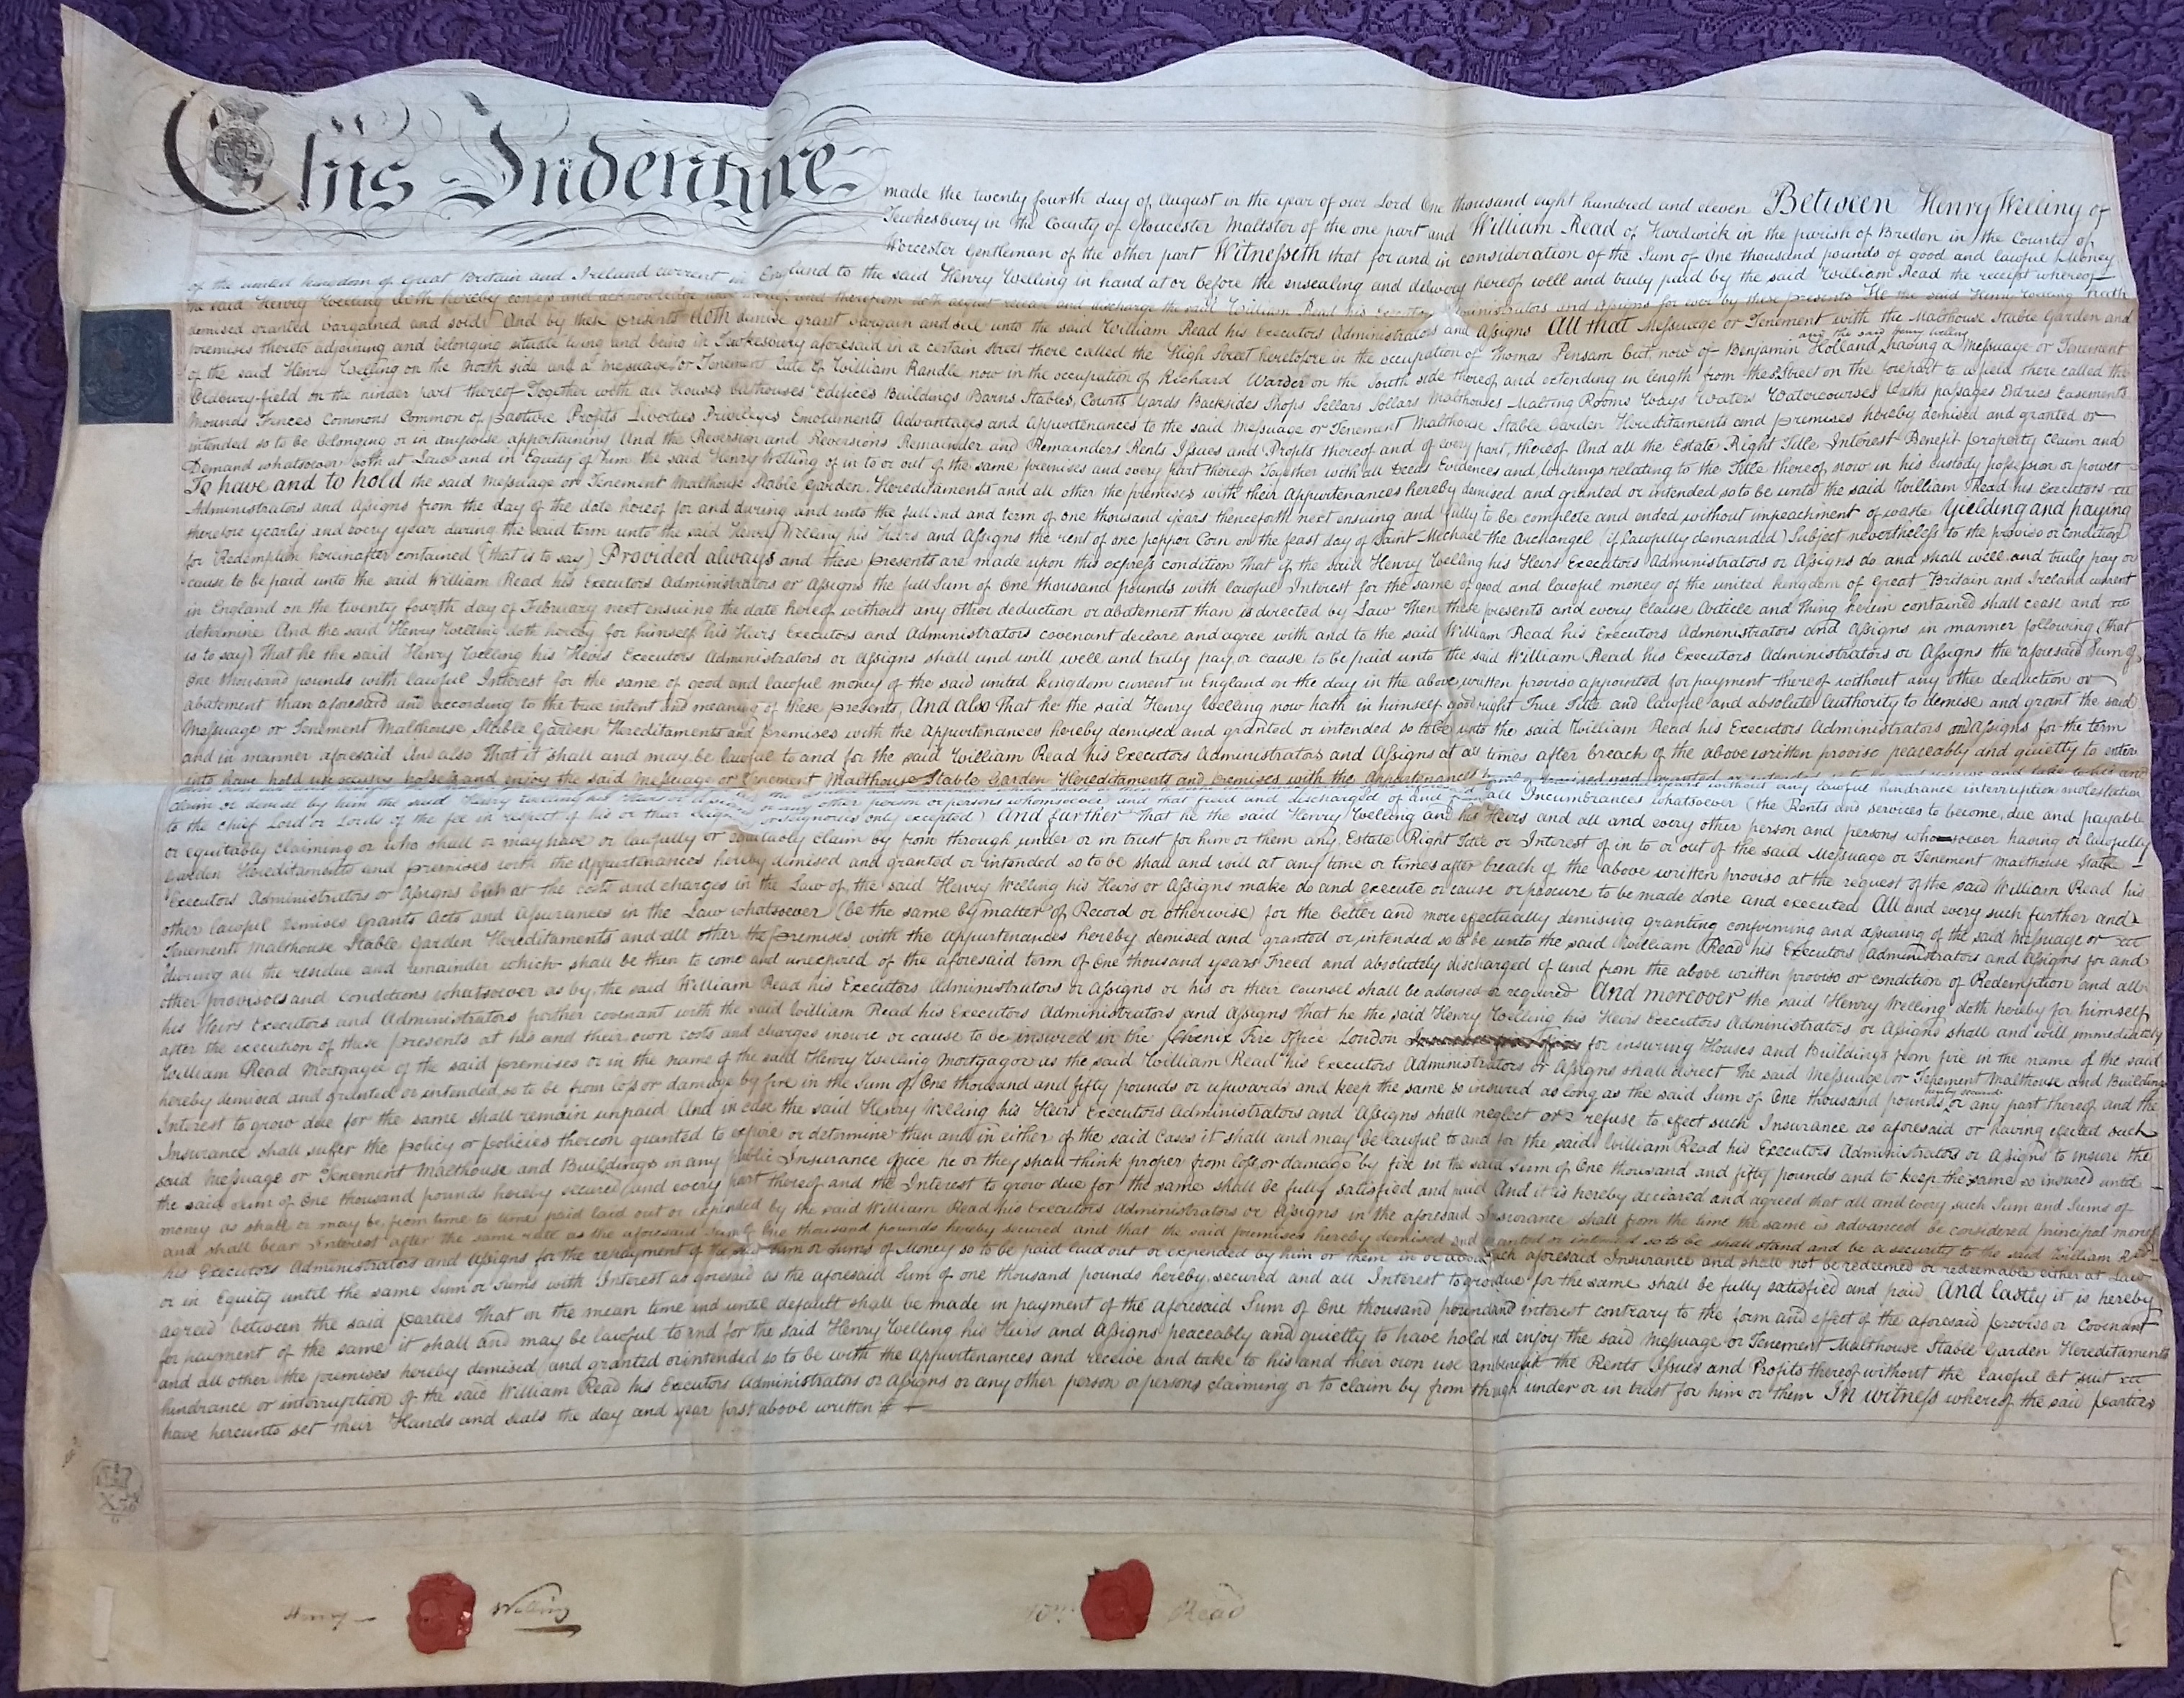 This Indenture
made the twenty fourth day of August in the year of our Lord One thousand eight hundred and eleven Between Henry Welling of
Tewkesbury in the County of Gloucester Maltster of the one part and William Read of Hardwick in the parish of Bredon in the County of
Worcester Gentleman of the other part Witnesseth that for and in consideration of the Sum of One thousand pounds of good and lawful Money
of the united kingdom of Great Britain and Ireland current in England to the said Henry Welling in hand at or before the ensealing and delivery hereof well and truly paid by the said William Read the receipt whereof
the said Henry Welling doth hereby confess and acknowledge and therefrom doth acquit release and discharge the said William Read his Executors Administrators and Assigns for ever by these presents He the said Henry Welling Hath
demised granted bargained and sold And by these presents Doth demise grant bargain and sell unto the said William Read his Executors Administrators and Assigns All that Messuage or Tenement with the Malthouse Stable Garden and
premises thereto adjoining and belonging situate lying and being in Tewkesbury aforesaid in a certain street there called the High Street heretofore in the occupation of Thomas Pensam but now of Benjamin Holland and the said Henry Welling having a Messuage or Tenement
of the said Henry Welling on the North side and a Messuage or Tenement late of William Randle now in the occupation of Richard Warder on the South side thereof and extending in length from the Street on the forepart to a field there called the
Oldbury-field on the hinder part thereof Together with all Houses Outhouses Edifices Buildings Barns Stables, Courts Yards Backsides Shops Sellars Sollars Malthouses Malting Rooms Ways Waters Watercourses Paths passages Entries Easements
Mounds Fences Commons Common of pasture Profits Liberties Privileges Emoluments Advantages and Appurtenances to the said Messuage or Tenement Malthouse Stable Garden Hereditaments and premises hereby demised and granted or
intended so to be belonging or in anywise appertaining And the Reversion and Reversions Remainder and Remainders Rents Issues and Profits thereof and of every part thereof And all the Estate Right Title Interest Benefit property claim and
Demand whatsoever both at Law and in Equity of him the said Henry Welling of in to or out of the same premises and every part thereof Together with all Deeds Evidences and writings relating to the Title thereof now in his custody possession or power
To have and to hold the said Messuage or Tenement Malthouse Stable Garden Hereditaments and all other the premises with their Appurtenances hereby demised and granted or intended so to be unto the said William Read his Executors
Administrators and Assigns from the day of the date hereof for and during and unto the full end and term of one thousand years thenceforth next ensuing and fully to be complete and ended without impeachment of waste Yielding and paying
therefore yearly and every year during the said term unto the said Henry Welling his Heirs and Assigns the rent of one pepper Corn on the feast day of Saint Michael the Archangel (if lawfully demanded) Subject nevertheless to the proviso or condition
for Redemption hereinafter contained (that is to say) Provided always and these presents are made upon this express condition That if the said Henry Welling his Heirs Executors Administrators or Assigns do and shall well and truly pay or
cause to be paid unto the said William Read his Executors Administrators or Assigns the full Sum of One thousand pounds with lawful Interest for the same of good and lawful money of the united kingdom of Great Britain and Ireland current
in England on the twenty fourth day of February next ensuing the date hereof without any other deduction or abatement than is directed by Law Then these presents and every Clause Article and thing herein contained shall cease and
determine And the said Henry Welling doth hereby for himself his Heirs Executors and Administrators covenant declare and agree with and to the said William Read his Executors Administrators and Assigns in manner following (that
is to say) That he the said Henry Welling his Heirs Executors Administrators or Assigns shall and will well and truly pay or cause to be paid unto the said William Read his Executors Administrators or Assigns the aforesaid Sum of
One thousand pounds with lawful Interest for the same of good and lawful money of the said united kingdom current in England on the day in the above written proviso appointed for payment thereof without any other deduction or
abatement than aforesaid and according to the true intent and meaning of these presents, And also That he the said Henry Welling now hath in himself good right True Title and lawful and absolute Authority to demise and grant the said
Messuage or Tenement Malthouse Stable Garden Hereditaments and premises with the Appurtenances hereby demised and granted or intended so to be unto the said William Read his Executors Administrators and Assigns for the term
and in manner aforesaid And also That it shall and may be lawful to and for the said William Read his Executors Administrators and Assigns at all times after breach of the above written proviso peaceably and quietly to enter
into have hold use occupy possess and enjoy the said Messuage or Tenement Malthouse Stable Garden Hereditaments and premises with the Appurtenances hereby demised and granted or intended so to be and receive and take to his and
years without any lawful hindrance interruption molestation
claim or denial by him the said Henry Welling his Heirs or Assigns or any other person or persons whomsoever and that freed and discharged of and from all Incumbrances whatsoever (the Rents and services to become due and payable
to the chief Lord or Lords of the fee in respect of his or their seignory or seignories only excepted) And further That he the said Henry Welling and his Heirs and all and every other person and persons whomsoever having or lawfully
or equitably claiming or who shall or may have or lawfully or equitably claim by from through under or in trust for him or them any Estate Right Title or Interest of in to or out of the said Messuage or Tenement Malthouse Stable
Garden Hereditaments and premises with the Appurtenances hereby demised and granted or intended so to be shall and will at any time or times after breach of the above written proviso at the request of the said William Read his
Executors Administrators or Assigns but at the costs and charges in the Law of the said Henry Welling his Heirs or Assigns make do and execute or cause or procure to be made done and executed All and every such further and
other lawful Demises Grants Acts and Assurances in the Law whatsoever (be the same by matter of Record or otherwise) for the better and more effectually demising granting confirming and assuring of the said Messuage or
Tenement Malthouse Stable Garden Hereditaments and all other the premises with the Appurtenances hereby demised and granted or intended so to be unto the said William Read his Executors Administrators and Assigns for and
during all the residue and remainder which shall be then to come and unexpired of the aforesaid term of One thousand years Freed and absolutely discharged of and from the above written proviso or condition of Redemption and all
other provisoes and Conditions whatsoever as by the said William Read his Executors Administrators or Assigns or his or their counsel shall be advised or required And moreover the said Henry Welling doth hereby for himself
his Heirs Executors and Administrators further covenant with the said William Read his Executors Administrators and Assigns That he the said Henry Welling his Heirs Executors Administrators or Assigns shall and will immediately
after the execution of these presents at his and their own costs and charges insure or cause to be insured in the Phœnix Fire Office London for insuring Houses and Buildings from fire in the name of the said
William Read Mortgagee of the said premises or in the name of the said Henry Welling Mortgagor as the said William Read his Executors Administrators or Assigns shall direct the said Messuage or Tenement Malthouse and Buildings
hereby demised and granted or intended so to be from loss or damage by fire in the Sum of One thousand and fifty pounds or upwards and keep the same so insured as long as the said Sum of One thousand pounds hereby secured or any part thereof and the
Interest to grow due for the same shall remain unpaid And in case the said Henry Welling his Heirs Executors Administrators and Assigns shall neglect or refuse to effect such Insurance as aforesaid or having effected such
Insurance shall suffer the policy or policies thereon granted to expire or determine then and in either of the said Cases it shall and may be lawful to and for the said William Read his Executors Administrators or Assigns to insure the
said Messuage or Tenement Malthouse and Buildings in any public Insurance office he or they shall think proper from loss or damage by fire in the said Sum of One thousand and fifty pounds and to keep the same so insured until
the said Sum of One thousand pounds hereby secured and every part thereof and the Interest to grow due for the same shall be fully satisfied and paid And it is hereby declared and agreed that all and every such Sum and Sums of
money as shall or may be from time to time paid laid out or expended by the said William Read his Executors Administrators or Assigns in the aforesaid Insurance shall from the time the same is advanced be considered principal money
and shall bear Interest after the same rate as the aforesaid Sum of One thousand pounds hereby secured and that the said premises hereby demised and granted or intended so to be shall stand and be a security to the said William Read
his Executors Administrators and Assigns for the repayment of the said Sum or Sums of Money so to be paid laid out or expended by him or them in or about such aforesaid Insurance and shall not be redeemed or redeemable either at Law
or in Equity until the same Sum or Sums with Interest as aforesaid as the aforesaid Sum of one thousand pounds hereby secured and all Interest to grow due for the same shall be fully satisfied and paid And lastly it is hereby
agreed between the said parties That in the mean time and until default shall be made in payment of the aforesaid Sum of One thousand pounds and interest contrary to the form and effect of the aforesaid proviso or Covenant
for payment of the same it shall and may be lawful to and for the said Henry Welling his Heirs and Assigns peaceably and quietly to have hold and enjoy the said Messuage or Tenement Malthouse Stable Garden Hereditaments
and all other the premises hereby demised and granted or intended so to be with the Appurtenances and receive and take to his and their own use and benefit the Rents Issues and Profits thereof without the lawful let suit
hindrance or interruption of the said William Read his Executors Administrators or Assigns or any other person or persons claiming or to claim by from through under or in trust for him or them In witness whereof the said parties
have hereunto set their Hands and seals the day and year first above written
Henry Welling
Wm Read